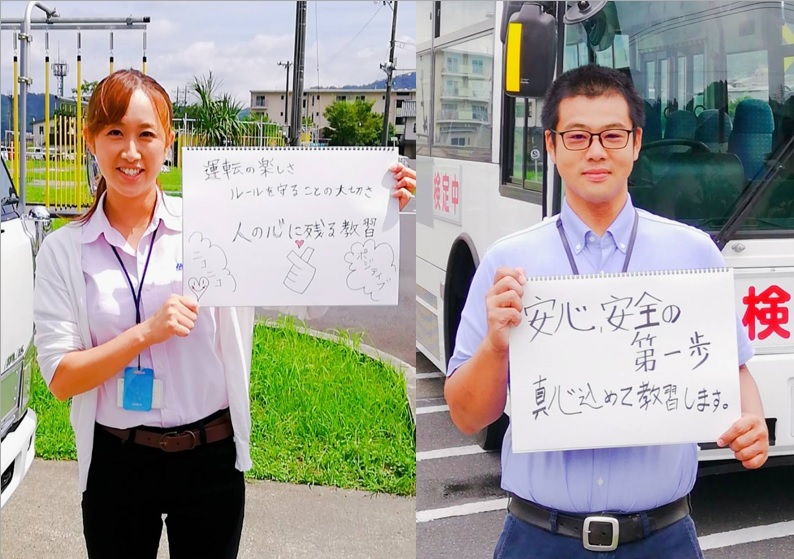 運転の楽しさ
ルールを守ることの大切さ
人の心に残る教習
ニコ
ニコ
ポジ
ティブ
検定中
検
安心、安全の
第一歩
真心込めて教習します。